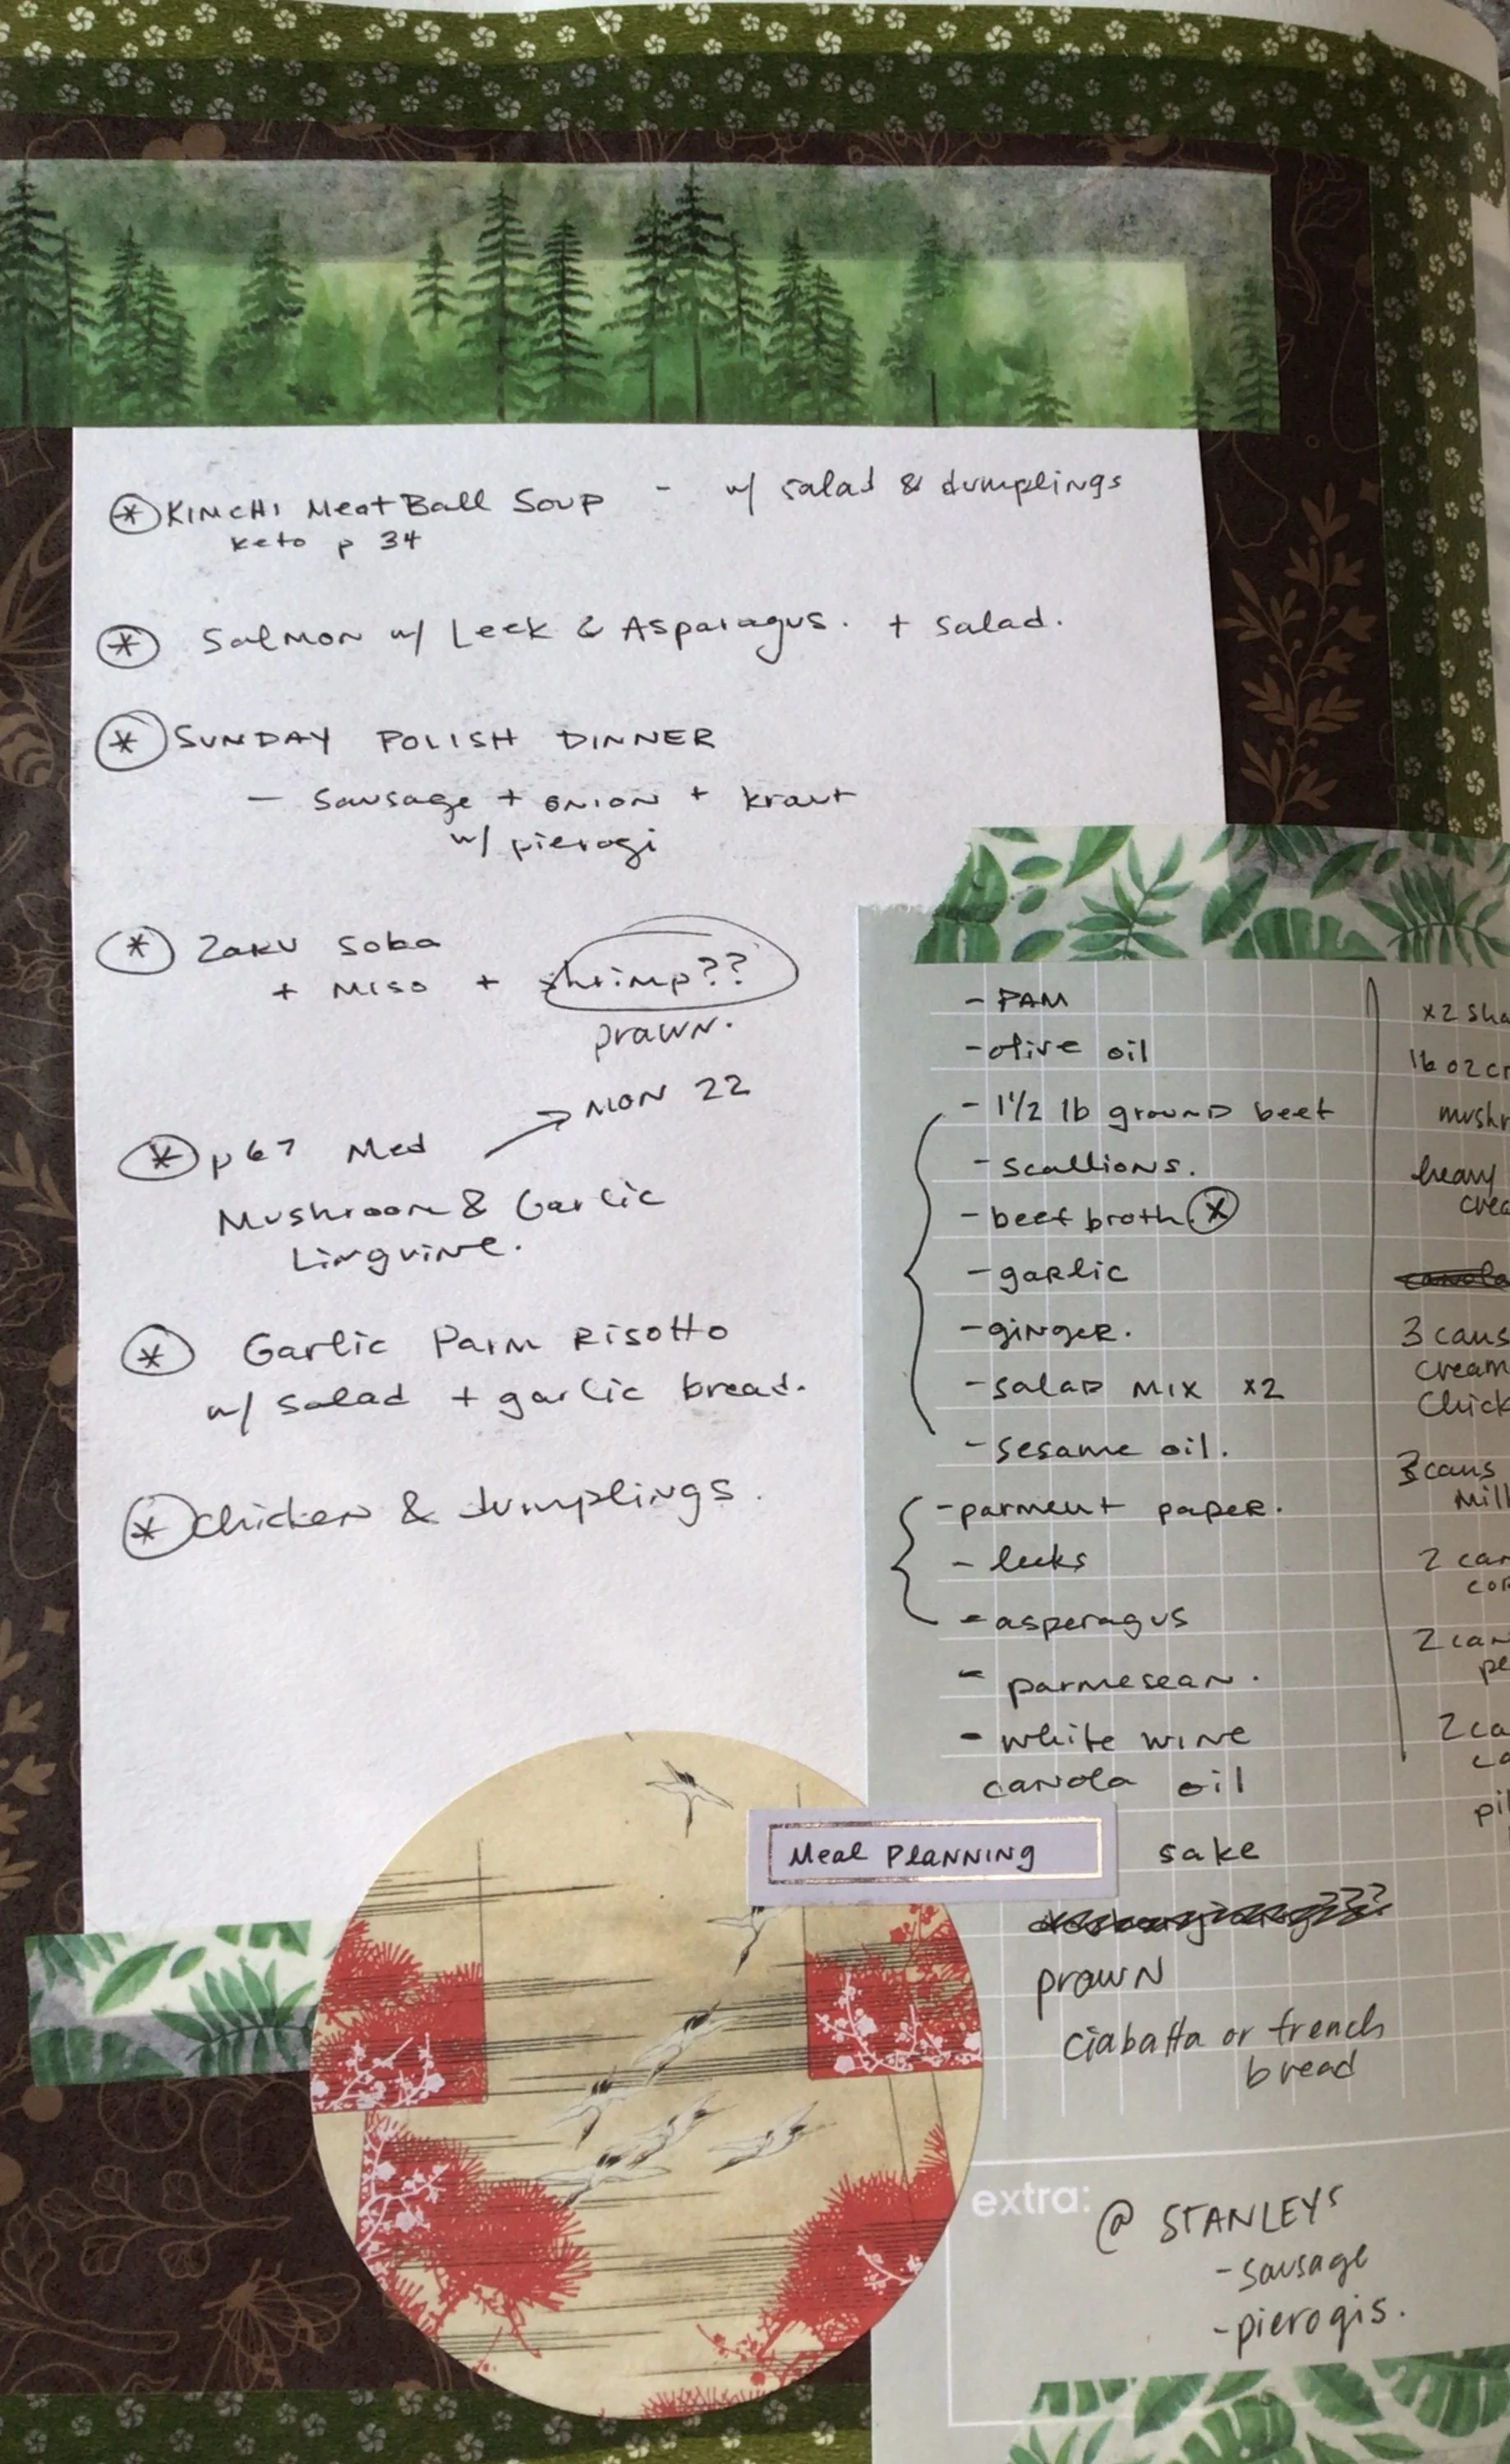 * KIMCHI MeatBall SOUP - w/ salad & dumplings
keto p 34
* Salmon w/ Leek & Asparagus. + salad.
* SUNDAY POLISH DINNER
- Sausage + onion + kraut
w/ pierogi
* Zaru Soba
+ Miso + shrimp??
prawn.
MON 22
* p67 Med
Mushroom & Garlic
Linguine.
* Garlic Parm Risotto
w/ salad + garlic bread.
* Chicken & dumplings.
- PAM
- olive oil
- 1 1/2 lb ground beef
- scallions.
- beef broth. X
- garlic
- ginger.
- salad mix x2
- sesame oil.
- parment paper.
- leeks
- asperagus
- parmesean.
- white wine
canola oil
sake
prawn
ciabatta or french
bread
x2
16 oz
heavy
canola
3 cans
cream
3 cans
2
2
2
Meal PLANNING
extra: @ STANLEYS
- sausage
- pierogis.